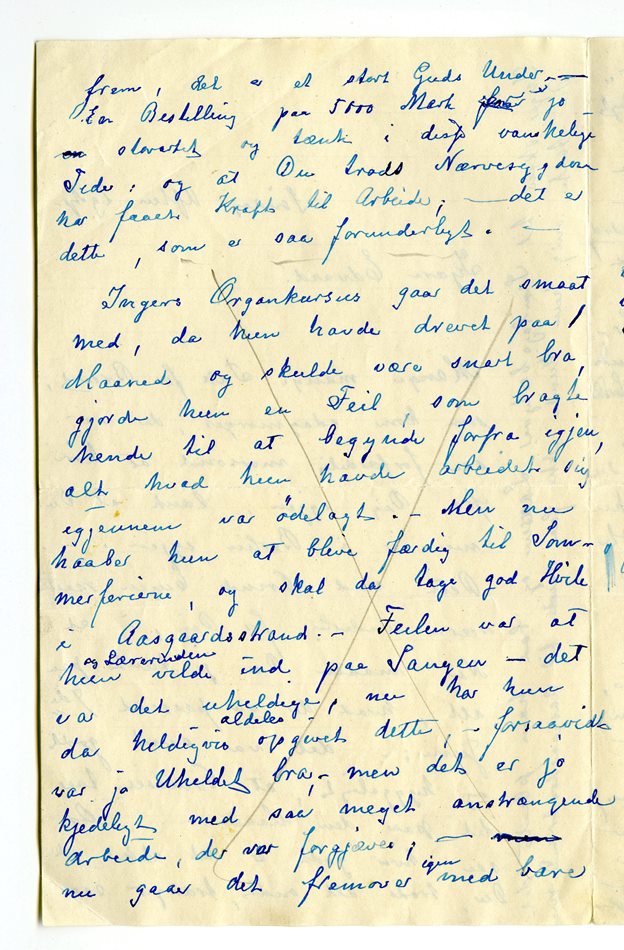 frem, det er et stort Guds Under, —
En Bestilling paa 5000 Mark er jo
storartet og tænk i disse vanskelige
Tider; og at Du trods Nervesygdom
har faaet Kraft til Arbeide, — det er
dette, som er saa forunderligt. —
Ingers Organkursus gaar det smaat
med, da hun havde drevet paa 1
Maaned og skulde være snart bra,
gjorde hun en Feil, som bragte
hende til at begynde forfra igjen,
alt hvad hun havde arbeidet sig
igjennem var ödelagt. — Men nu
haaber hun at bleve færdig til Som-
merferierne, og skal da tage god Hvile
i Aasgaardsstrand. — Feilen var at
hun og Lærerinden vilde ind paa Sangen — det
var det uheldige, nu har hun
da heldigvis aldeles opgivet dette, — forsaavidt
var jo Uheldet bra, — men det er jo
kjedeligt med saa meget anstrængende
Arbeide, der var forgjæves; — men
nu gaar det fremover igen med bare